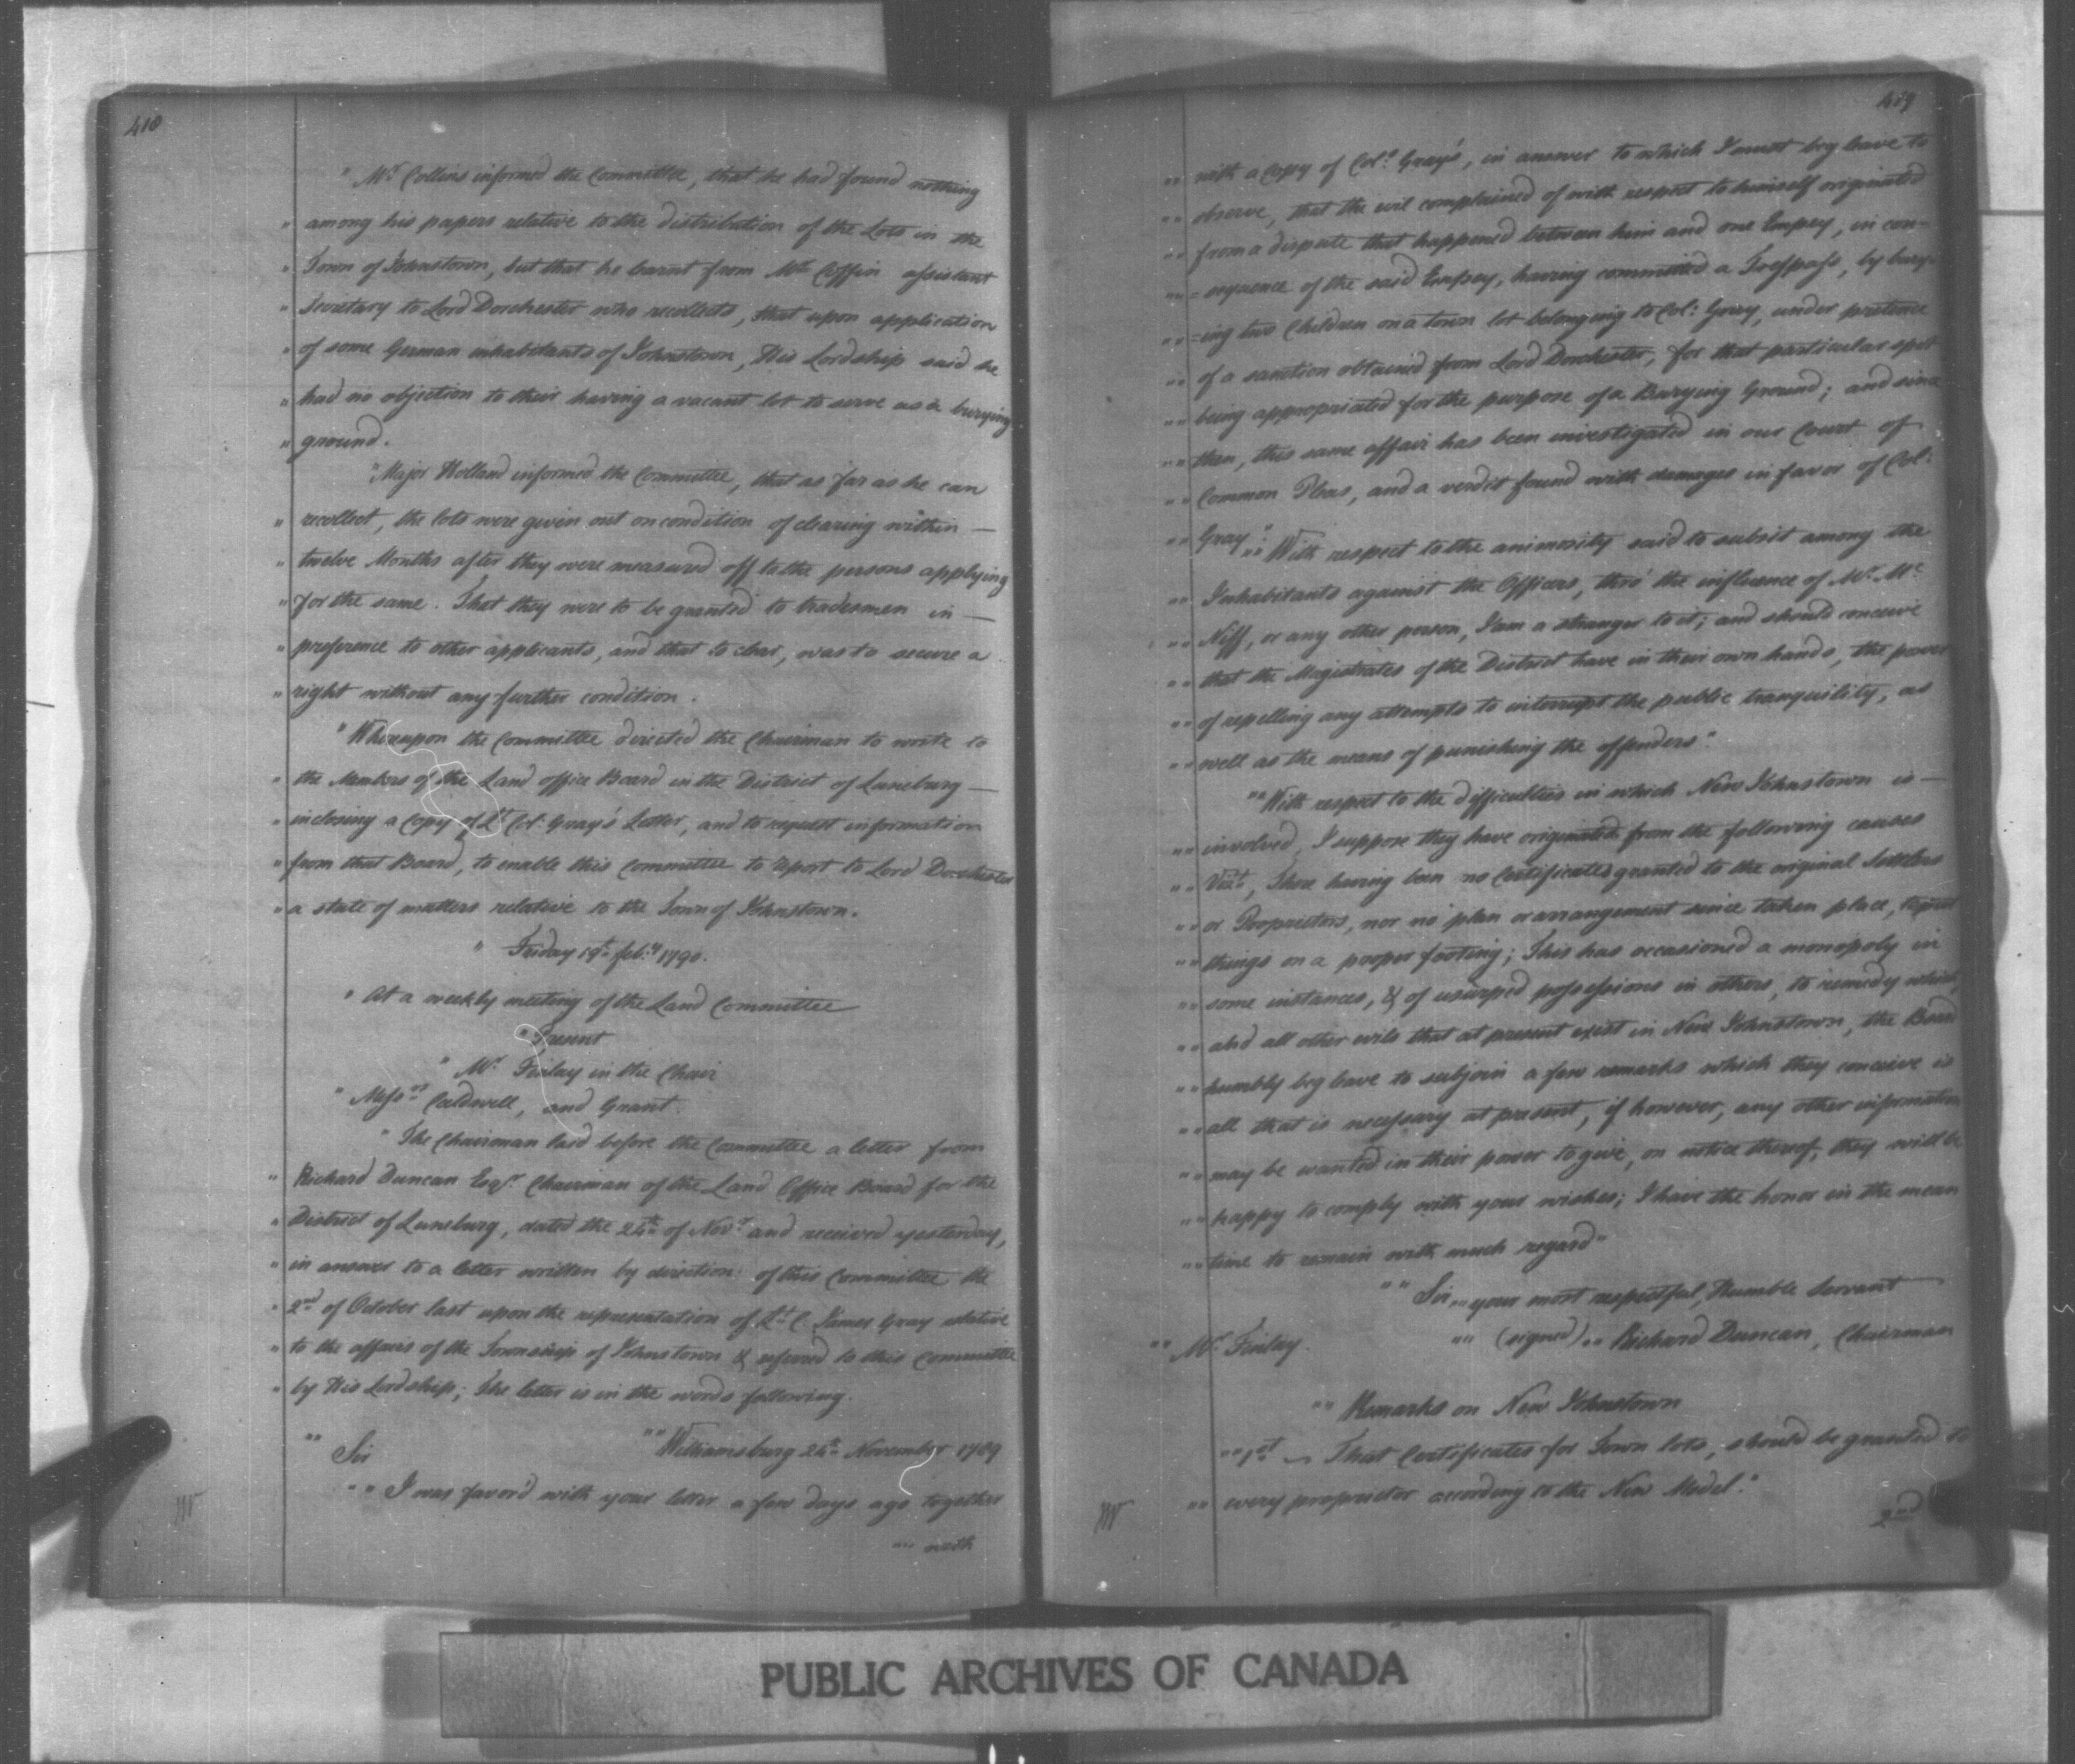 418
" Mr. Collins informed the Committee, that he had found nothing
" among his papers relative to the distribution of the Lots in the
" Town of Johnstown, but that he learnt from Mr. Coffin assistant
" Secretary to Lord Dorchester who recollects, that upon application
" of some German inhabitants of Johnstown, His Lordship said he
" had no objection to their having a vacant lot to serve as a burying
" ground.
" Major Holland informed the Committee, that as far as he can
" recollect, the lots were given out on condition of clearing within —
" twelve Months after they were measured off to the persons applying
" for the same. That they were to be granted to tradesmen in —
" preference to other applicants, and that to clear, was to secure a
" right without any further condition.
" Whereupon the Committee directed the Chairman to write to
" the Members of the Land office Board in the District of Luneburg —
" inclosing a Copy of Lt. Col: Gray's Letter, and to request information
" from that Board, to enable this Committee to report to Lord Dorchester
" a state of matters relative to the Town of Johnstown.
" Friday 19th feb:y 1790.
" At a weekly meeting of the Land Committee
" Present
" Mr. Finlay in the Chair
" Messrs Caldwell, and Grant
" The Chairman laid before the Committee a letter from
" Richard Duncan Esqr. Chairman of the Land Office Board for the
" District of Luneburg, dated the 24th of Novr. and received yesterday,
" in answer to a letter written by direction of this Committee the
" 2nd of October last upon the representation of Lt. C. James Gray relative
" to the affairs of the Township of Johnstown & referred to this Committee
" by His Lordship; The letter is in the words following.
"" Sir "" Williamsburg 24th November 1789
"" I was favor'd with your letter a few days ago together
"" with
419
"" with a Copy of Col:o Gray's, in answer to which I must beg leave to
"" observe, that the evil complained of with respect to himself originated
"" from a dispute that happened between him and one Empey, in con-
"" =sequence of the said Empey, having committed a Trespass, by bury-
"" =ing two Children on a town lot belonging to Col: Gray, under pretence
"" of a sanction obtained from Lord Dorchester, for that particular spot
"" being appropriated for the purpose of a Burying Ground; and since
"" then, this same affair has been investigated in our Court of
"" Common Pleas, and a verdict found with damages in favor of Col:
"" Gray." "" With respect to the animosity said to subsist among the
"" Inhabitants against the Officers, thro' the influence of Mr. Mc
"" Niff, or any other person, I am a stranger to it; and should conceive
"" that the Magistrates of the District have in their own hands, the power
"" of repelling any attempts to interrupt the public tranquility, as
"" well as the means of punishing the offenders".
"" With respect to the difficulties in which New Johnstown is —
"" involved, I suppose they have originated from the following causes
"" Vizt., There having been no Certificates granted to the original Settlers
"" or Proprietors, nor no plan or arrangement since taken place, to put
"" things on a proper footing; This has occasioned a monopoly in
"" some instances, & of usurped possessions in others, to remedy which,
"" and all other evils that at present exist in New Johnstown, the Board
"" humbly beg leave to subjoin a few remarks which they conceive is
"" all that is necessary at present, if however, any other information
"" may be wanted in their power to give, on notice thereof, they will be
"" happy to comply with your wishes; I have the honor in the mean
"" time to remain with much regard"
"" Sir "" your most respectful, Humble Servant
"" (signed) "" Richard Duncan, Chairman
"" Mr. Finlay.
"" Remarks on New Johnstown
"" 1st — That Certificates for Town lots, should be granted to
"" every proprietor according to the New Model."
2nd
PUBLIC ARCHIVES OF CANADA